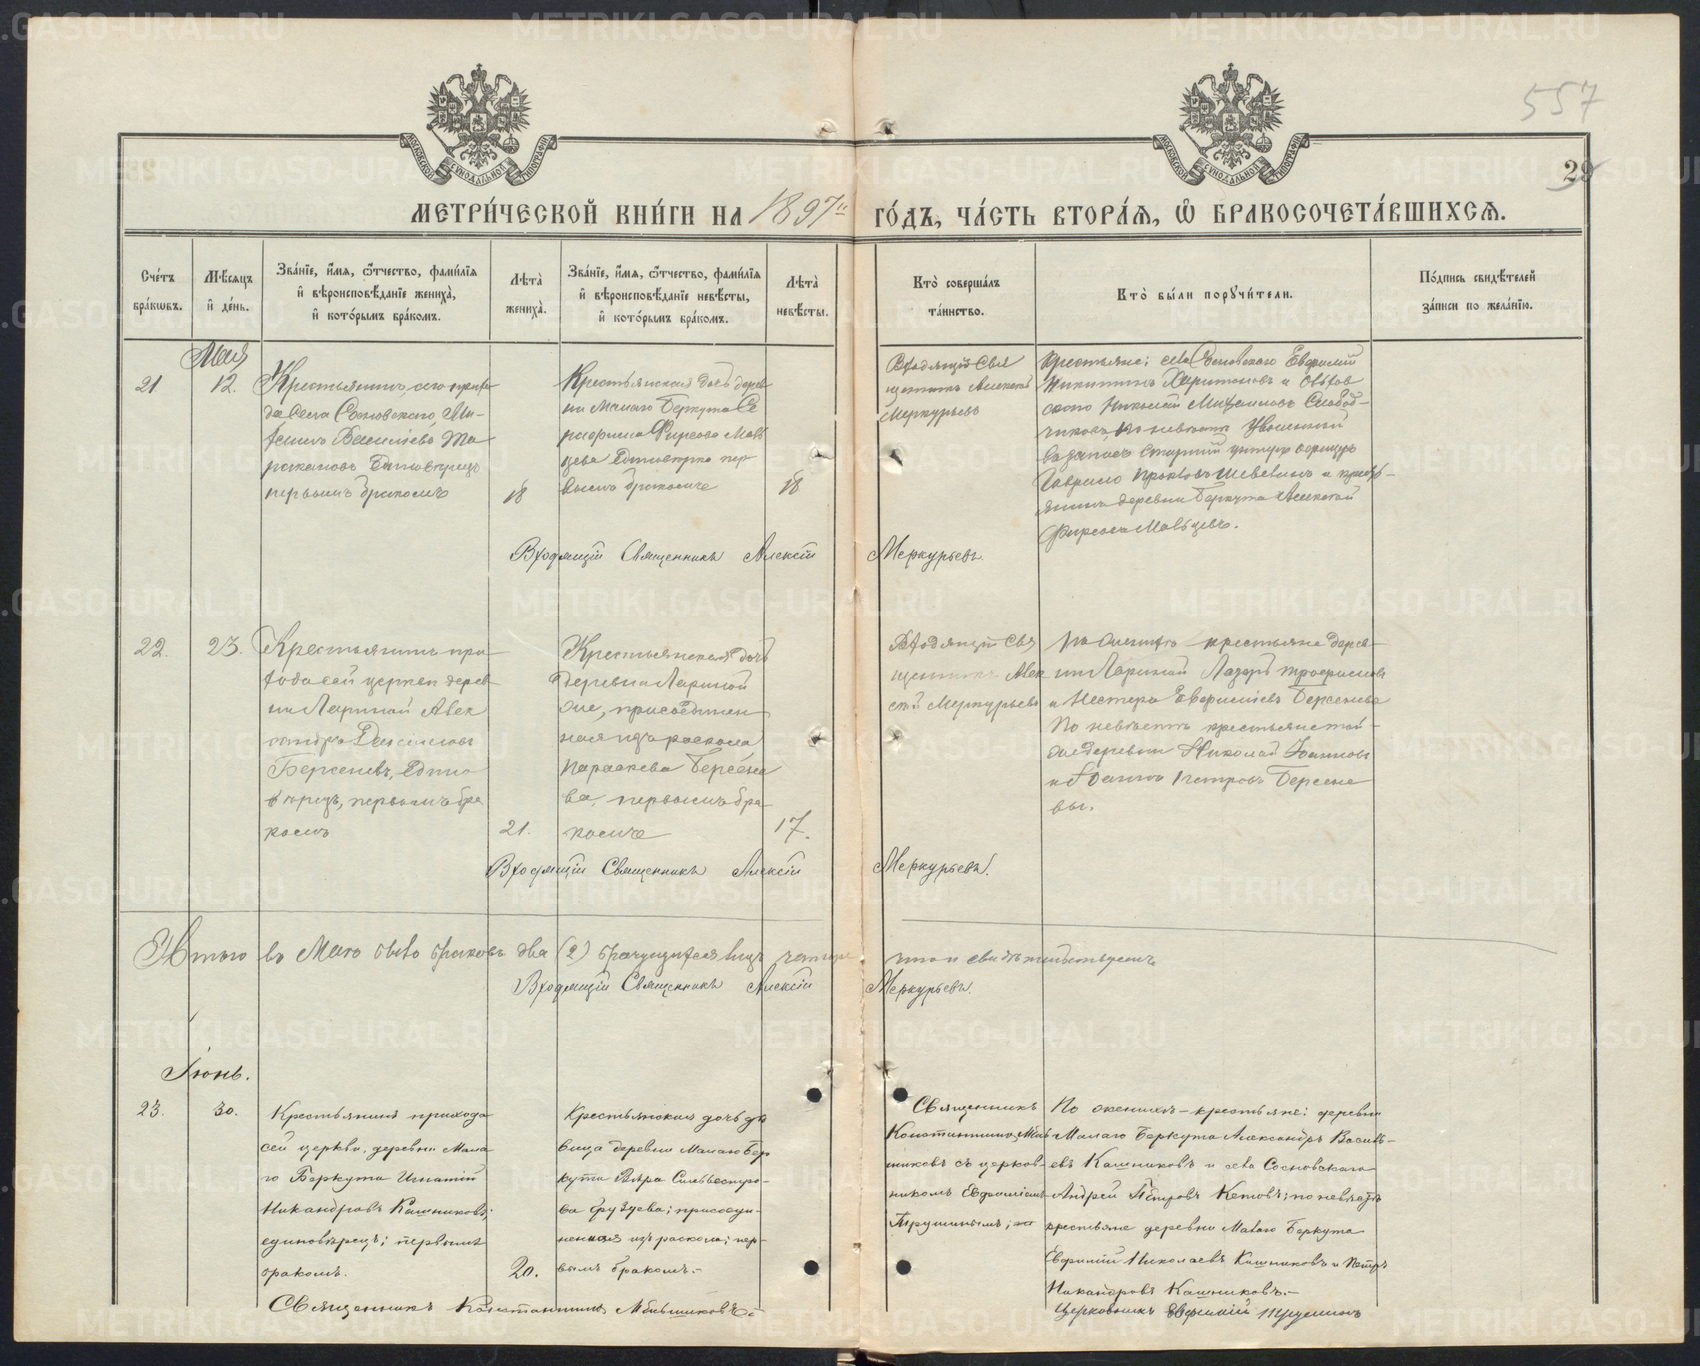 557
29
МЕТРИ́ЧЕСКОЙ КНИ́ГИ НА 1897й ГО́ДЪ, ЧА́СТЬ ВТОРА́Ѧ, Ѽ БРАКОСОЧЕТА́ВШИХСѦ.
Счетъ бракѡвъ.
Мѣсяцъ и день.
Званіе, имя, ѿчество, фамилія и вѣроисповѣданіе жениха, и которымъ бракомъ.
Лѣта жениха.
Званіе, имя, ѿчество, фамилія и вѣроисповѣданіе невѣсты, и которымъ бракомъ.
Лѣта невѣсты.
Кто совершалъ таинство.
Кто были поручители.
Подпись свидѣтелей записи по желанію.
Мая
21
12.
Крестьянинъ сего прихо
да села Сосновскаго, Ми
хаилъ Васильевъ Та
ракановъ Единовѣрецъ
первымъ бракомъ
18
Крестьянская дочь дерев
ни Малаго Беркута Се
рафима Фирсова Маль
цева Единовѣрка пер
вымъ бракомъ
18
Входящій Свя
щенникъ Алексей
Меркурьевъ
крестьяне: села Сосновскаго Евфимій
Никитинъ Харитоновъ и
Николай Михаиловъ Слобод
чиковъ, по невѣстѣ Уволенный
въ запасъ Старшій унтеръ офицеръ
Гаврило Шевелинъ и кресть
янинъ деревни Беркута Алексей
Фирсовъ Мальцевъ.
Входящій Священникъ Алексій Меркурьевъ.
22.
23.
Крестьянинъ при
хода сей церкви дерев
ни Лариной Алек
сандръ Денисовъ
Берсеневъ, Едино
вѣрецъ, первымъ бра
комъ
21.
Крестьянская дочь
деревни Лариной
она, присоединен
ная изъ раскола
Параскева Берсене
ва, первымъ бра
комъ
17.
Входящій Свя
щенникъ Алек
сей Меркурьевъ
По женихѣ крестьяне дерев
ни Лариной Лазарь Трофимовъ
и Нестеръ Евфиміевъ Берсеневы
По невѣстѣ крестьяне той
же деревни Николай Іоанновъ
и Іоаннъ Петровъ Берсене
вы.
Входящій Священникъ Алексій Меркурьевъ.
Итого въ Маѣ было браковъ два (2) брачущихся лицъ четыре что и свидѣтельствуемъ
Входящій Священникъ Алексій Меркурьевъ.
Іюнь.
23.
30.
Крестьянинъ прихода
сей церкви, деревни Мала
го Беркута Игнатій
Никандровъ Кашниковъ;
единовѣрецъ; первымъ
бракомъ.
20.
Крестьянская дочь дѣ
вица деревни Малаго Бер
кута Вѣра Сильвестро
ва Фуздева; присоеди
ненная изъ раскола; пер
вымъ бракомъ.-
Священникъ
Константинъ Мыль
никовъ съ церков
никомъ Евфиміемъ
Трушинымъ;
По женихѣ - крестьяне: деревни
Малаго Беркута Александръ Василь
евъ Кашниковъ и села Сосновскаго
Андрей Петровъ Кетовъ; по невѣстѣ
крестьяне деревни Малаго Беркута
Евфимій Николаевъ Кашниковъ и Петръ
Никандровъ Кашниковъ.-
Священникъ Константинъ Мыльниковъ
Церковникъ Евфимій Трушинъ